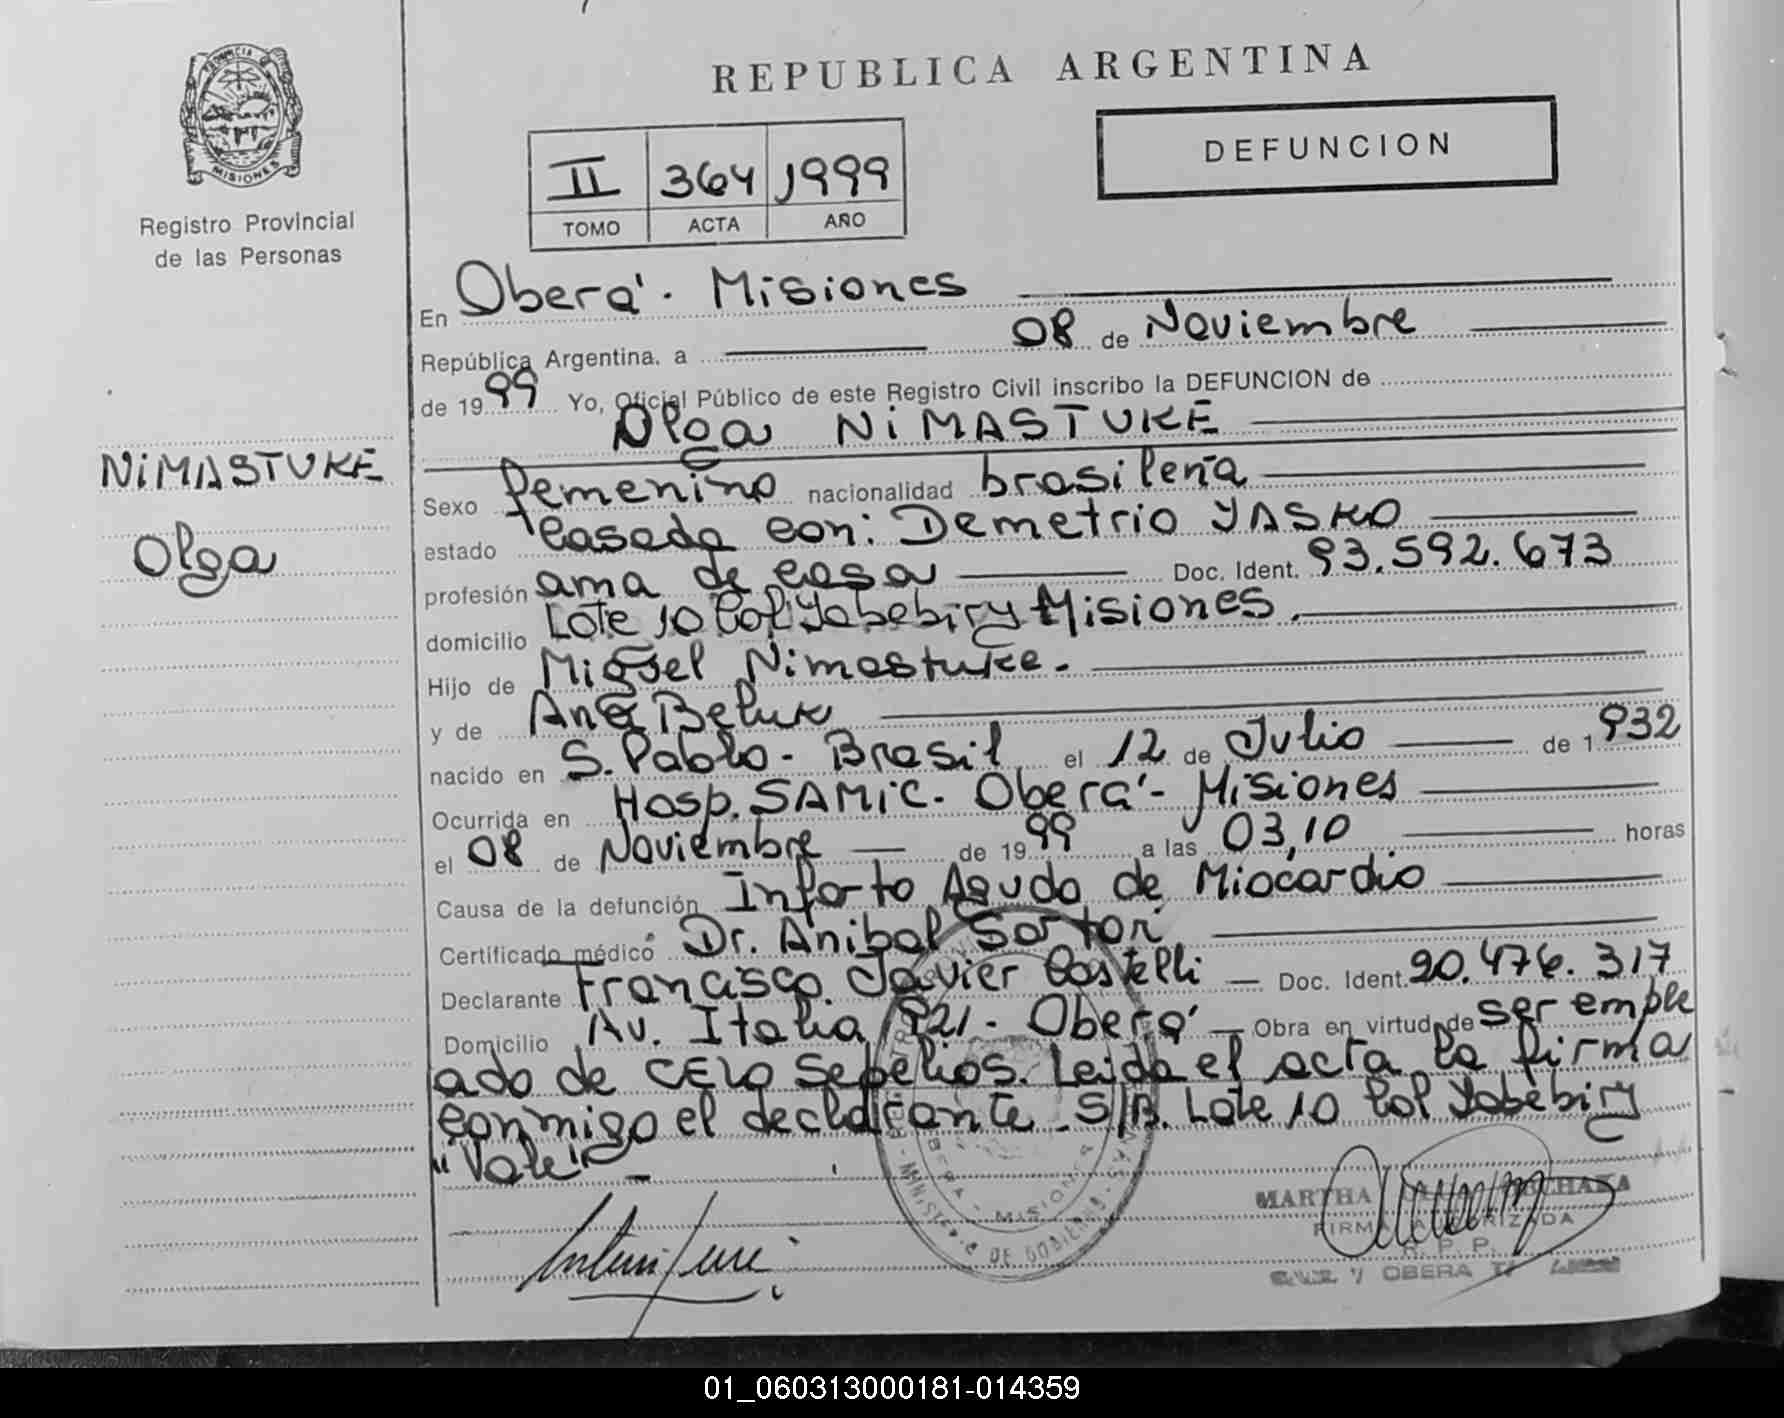 PROVINCIA
MISIONES
Registro Provincial
de las Personas
NiMASTUKE
Olga
REPUBLICA ARGENTINA
DEFUNCION
II 364 1999
TOMO ACTA AÑO
En Oberá. Misiones
República Argentina, a 08 de Noviembre
de 1999 Yo, Oficial Público de este Registro Civil inscribo la DEFUNCION de
Olga NiMASTUKE
Sexo femenino nacionalidad brasileña
estado Casada con: Demetrio YASKO
profesión ama de casa Doc. Ident. 93.592.673
domicilio Lote 10 Col Yabebiry Misiones.
Hijo de Miguel Nimastuke.
y de Ana Beluk
nacido en S. Pablo - Brasil el 12 de Julio de 1932
Ocurrida en Hosp. SAMiC - Oberá - Misiones
el 08 de Noviembre de 1999 a las 03,10 horas
Causa de la defunción Infarto Agudo de Miocardio
Certificado médico Dr. Anibal Sartori
Declarante Francisco Javier Castelli Doc. Ident. 20.476.317
Domicilio Av. Italia 921 - Oberá Obra en virtud de ser emple
ado de CELO Sepelios. Leida el acta la firma
conmigo el declarante. S/B. Lote 10 Col Yabebiry
"Vale" -
MINISTERIO DE GOBIERNO
OBERA - MISIONES
MARTHA
FIRMA AUTORIZADA
R. P. P.
OBERA
01_060313000181-014359